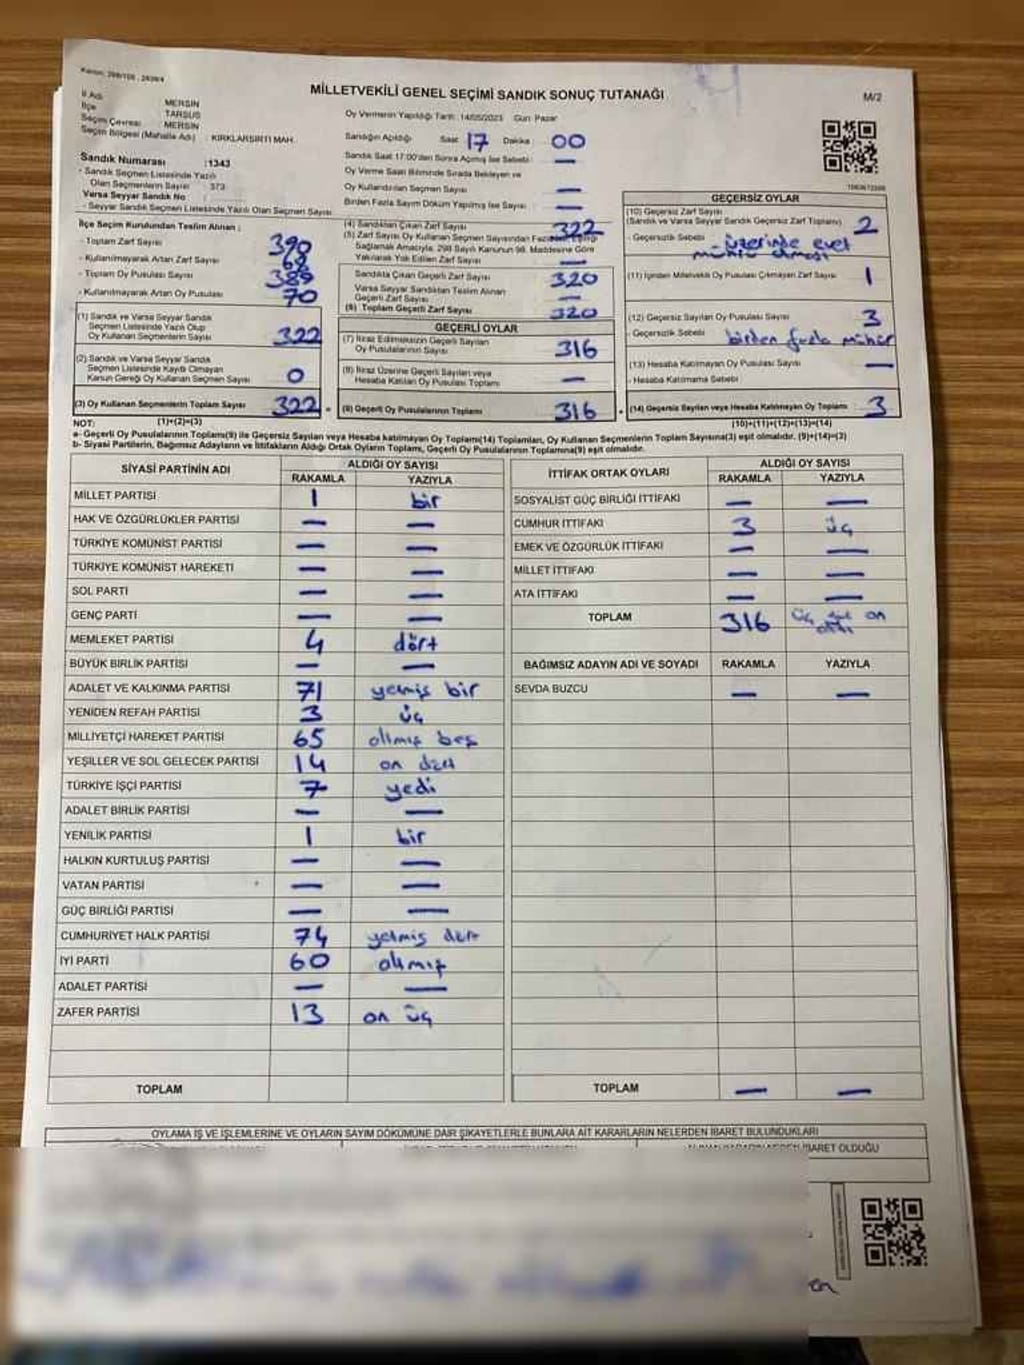 Kanun: 298/105 , 2839/4
MİLLETVEKİLİ GENEL SEÇİMİ SANDIK SONUÇ TUTANAĞI
M/2
İl Adı : MERSİN
İlçe : TARSUS
Seçim Çevresi : MERSİN
Seçim Bölgesi (Mahalle Adı) : KIRKLARSIRTI MAH.
Sandık Numarası : 1343
- Sandık Seçmen Listesinde Yazılı
Olan Seçmenlerin Sayısı : 373
Varsa Seyyar Sandık No :
- Seyyar Sandık Seçmen Listesinde Yazılı Olan Seçmen Sayısı
İlçe Seçim Kurulundan Teslim Alınan ;
- Toplam Zarf Sayısı 390
- Kullanılmayarak Artan Zarf Sayısı 68
- Toplam Oy Pusulası Sayısı 389
- Kullanılmayarak Artan Oy Pusulası 70
(1) Sandık ve Varsa Seyyar Sandık
Seçmen Listesinde Yazılı Olup
Oy Kullanan Seçmenlerin Sayısı 322
(2) Sandık ve Varsa Seyyar Sandık
Seçmen Listesinde Kayıtlı Olmayan
Kanun Gereği Oy Kullanan Seçmen Sayısı 0
(3) Oy Kullanan Seçmenlerin Toplam Sayısı 322
(1)+(2)=(3)
Oy Vermenin Yapıldığı Tarih : 14/05/2023 Gün: Pazar
Sandığın Açıldığı Saat : 17 Dakika : 00
Sandık Saat 17:00'den Sonra Açılmış İse Sebebi : —
Oy Verme Saati Bitiminde Sırada Bekleyen ve
Oy Kullandırılan Seçmen Sayısı —
Birden Fazla Sayım Döküm Yapılmış İse Sayısı : —
(4) Sandıktan Çıkan Zarf Sayısı 322
(5) Zarf Sayısı Oy Kullanan Seçmen Sayısından Fazla İse, Eşitliği
Sağlamak Amacıyla, 298 Sayılı Kanunun 98. Maddesine Göre
Yakılarak Yok Edilen Zarf Sayısı —
Sandıkta Çıkan Geçerli Zarf Sayısı 320
Varsa Seyyar Sandıktan Teslim Alınan
Geçerli Zarf Sayısı —
(6) Toplam Geçerli Zarf Sayısı 320
GEÇERLİ OYLAR
(7) İtiraz Edilmeksizin Geçerli Sayılan
Oy Pusulalarının Sayısı 316
(8) İtiraz Üzerine Geçerli Sayılan veya
Hesaba Katılan Oy Pusulası Toplamı —
(9) Geçerli Oy Pusulalarının Toplamı 316
GEÇERSİZ OYLAR
(10) Geçersiz Zarf Sayısı
(Sandık ve Varsa Seyyar Sandık Geçersiz Zarf Toplamı) 2
- Geçersizlik Sebebi : üzerinde evet
mührü olması
(11) İçinden Milletvekili Oy Pusulası Çıkmayan Zarf Sayısı 1
(12) Geçersiz Sayılan Oy Pusulası Sayısı 3
- Geçersizlik Sebebi birden fazla mühür
(13) Hesaba Katılmayan Oy Pusulası Sayısı —
- Hesaba Katılmama Sebebi
(14) Geçersiz Sayılan veya Hesaba Katılmayan Oy Toplamı 3
(10)+(11)+(12)+(13)=(14)
NOT:
a- Geçerli Oy Pusulalarının Toplamı(9) ile Geçersiz Sayılan veya Hesaba katılmayan Oy Toplamı(14) Toplamları, Oy Kullanan Seçmenlerin Toplam Sayısına(3) eşit olmalıdır. (9)+(14)=(3)
b- Siyasi Partilerin, Bağımsız Adayların ve İttifakların Aldığı Ortak Oyların Toplamı, Geçerli Oy Pusulalarının Toplamına(9) eşit olmalıdır.
SİYASİ PARTİNİN ADI ALDIĞI OY SAYISI
RAKAMLA YAZIYLA
MİLLET PARTİSİ 1 bir
HAK VE ÖZGÜRLÜKLER PARTİSİ — —
TÜRKİYE KOMÜNİST PARTİSİ — —
TÜRKİYE KOMÜNİST HAREKETİ — —
SOL PARTİ — —
GENÇ PARTİ — —
MEMLEKET PARTİSİ 4 dört
BÜYÜK BİRLİK PARTİSİ — —
ADALET VE KALKINMA PARTİSİ 71 yetmiş bir
YENİDEN REFAH PARTİSİ 3 üç
MİLLİYETÇİ HAREKET PARTİSİ 65 altmış beş
YEŞİLLER VE SOL GELECEK PARTİSİ 14 on dört
TÜRKİYE İŞÇİ PARTİSİ 7 yedi
ADALET BİRLİK PARTİSİ — —
YENİLİK PARTİSİ 1 bir
HALKIN KURTULUŞ PARTİSİ — —
VATAN PARTİSİ — —
GÜÇ BİRLİĞİ PARTİSİ — —
CUMHURİYET HALK PARTİSİ 74 yetmiş dört
İYİ PARTİ 60 altmış
ADALET PARTİSİ — —
ZAFER PARTİSİ 13 on üç
TOPLAM
İTTİFAK ORTAK OYLARI ALDIĞI OY SAYISI
RAKAMLA YAZIYLA
SOSYALİST GÜÇ BİRLİĞİ İTTİFAKI — —
CUMHUR İTTİFAKI 3 üç
EMEK VE ÖZGÜRLÜK İTTİFAKI — —
MİLLET İTTİFAKI — —
ATA İTTİFAKI — —
TOPLAM 316 üç yüz on
altı
BAĞIMSIZ ADAYIN ADI VE SOYADI RAKAMLA YAZIYLA
SEVDA BUZCU — —
TOPLAM — —
OYLAMA İŞ VE İŞLEMLERİNE VE OYLARIN SAYIM DÖKÜMÜNE DAİR ŞİKAYETLERLE BUNLARA AİT KARARLARIN NELERDEN İBARET BULUNDUKLARI
İBARET OLDUĞU